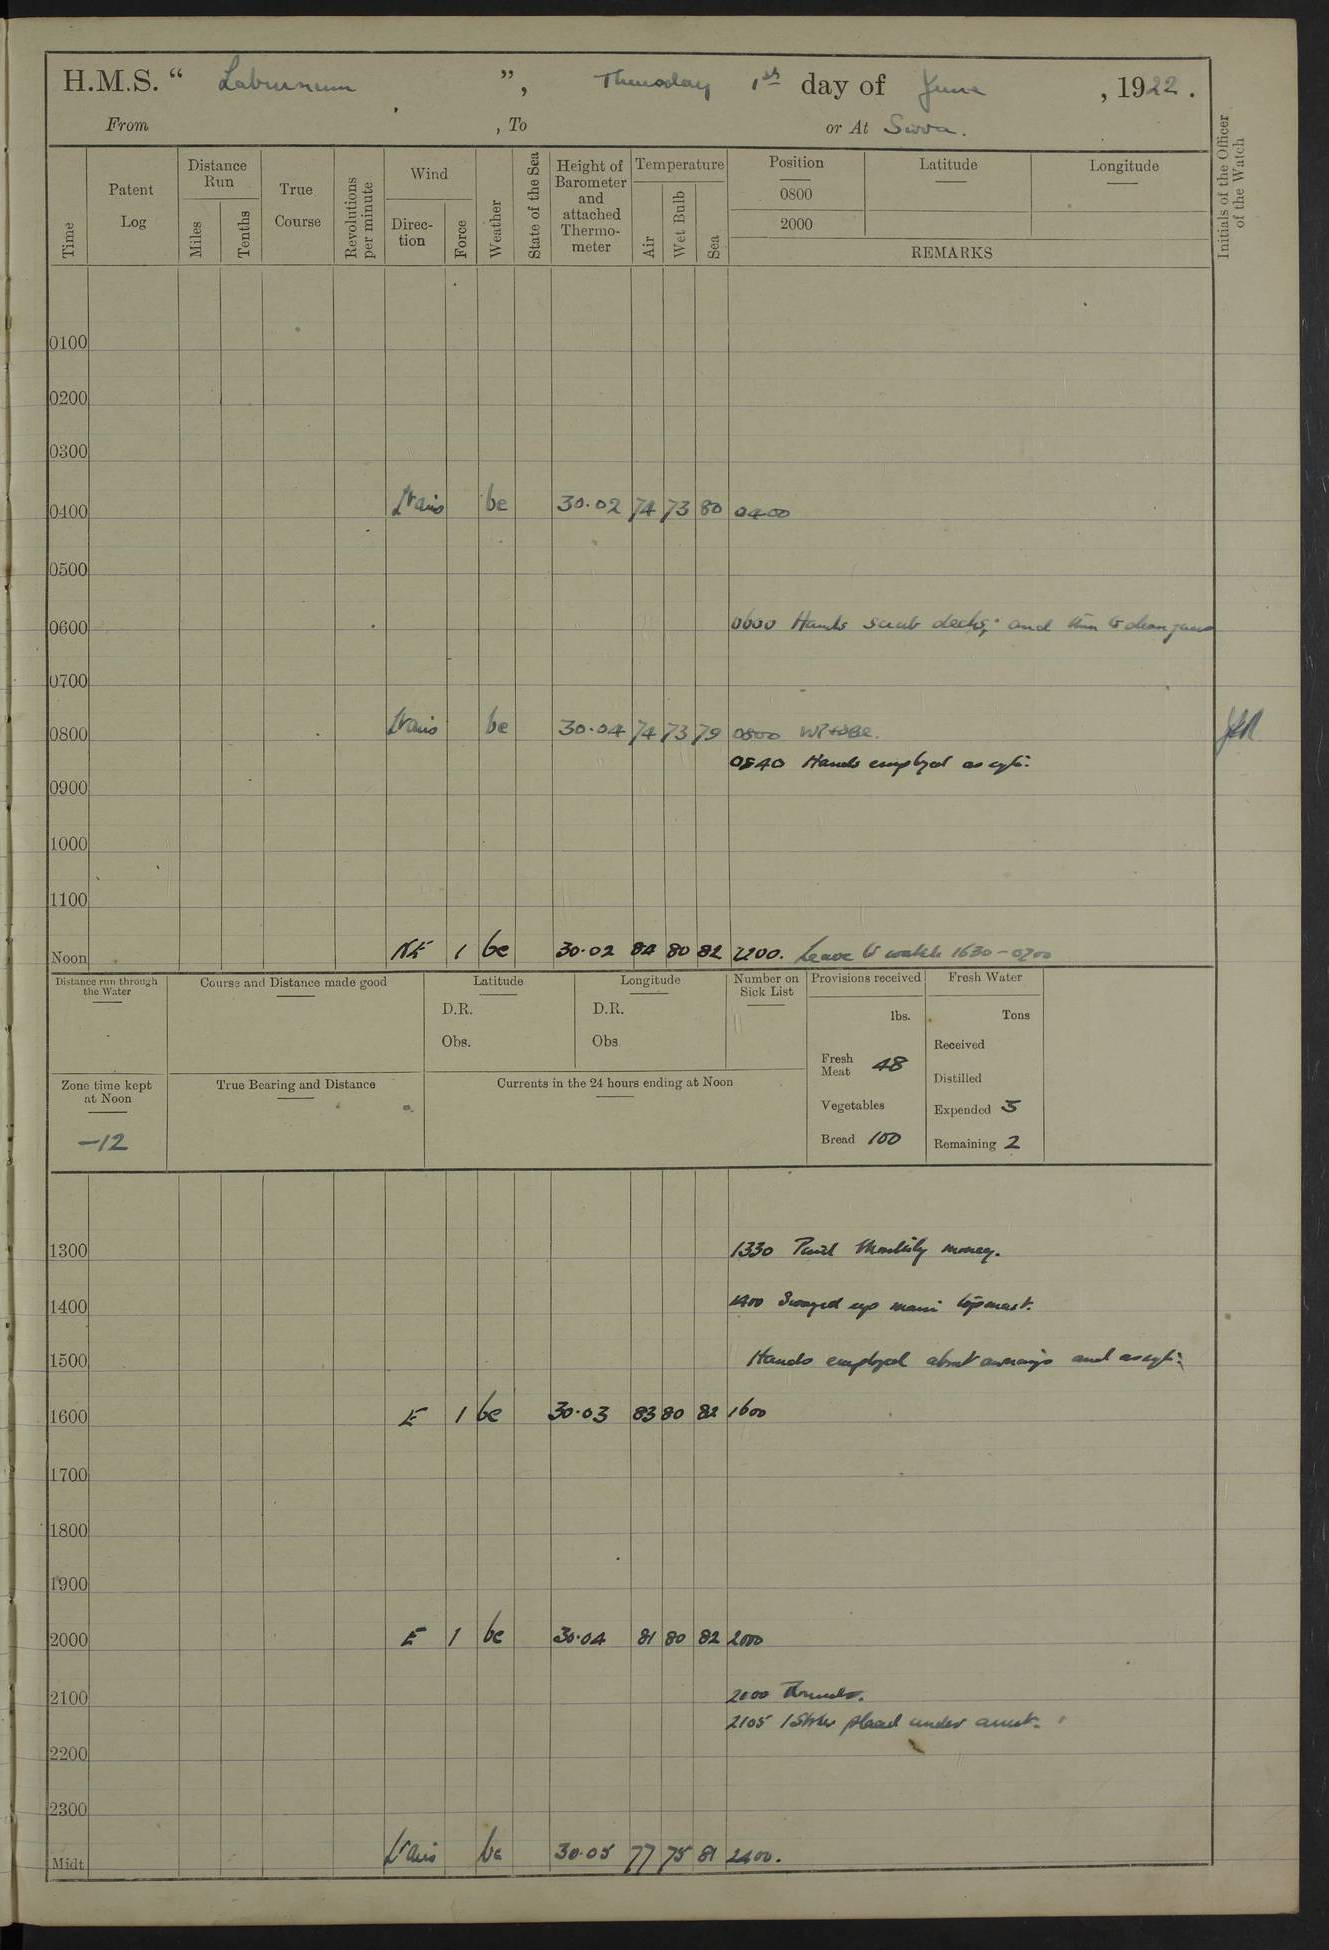 H.M.S. “ Laburnum ”, Thursday 1st day of June , 1922 .
From , To or At Suva.
Time
Patent Log
Distance Run
Miles
Tenths
True Course
Revolutions per minute
Wind
Direc-tion
Force
Weather
State of the Sea
Height of Barometer and attached Thermo-meter
Temperature
Air
Wet Bulb
Sea
Position
0800
2000
Latitude
Longitude
REMARKS
Initials of the Officer of the Watch
0100
0200
0300
0400 Lt airs bc 30.02 74 73 80 0400
0500
0600 0600 Hands scrub decks, and clean guns
0700
0800 Lt airs bc 30.04 74 73 79 0800
0840 Hands employed as
0900
1000
1100
Noon NE 1 bc 30.02 84 80 82 1200. Leave to watch 1630-0700
Distance run through the Water
Course and Distance made good
Latitude
D.R.
Obs.
Longitude
D.R.
Obs
Number on Sick List
Provisions received
lbs.
Fresh Meat 48
Vegetables
Bread 100
Fresh Water
Tons
Received
Distilled
Expended 5
Remaining 2
Zone time kept at Noon
-12
True Bearing and Distance
Currents in the 24 hours ending at Noon
1300 1330 Paid Monthly money.
1400 1400 Swayed up main topmast.
1500 Hands employed about awnings and as
1600 E 1 bc 30.03 83 80 82 1600
1700
1800
1900
2000 E 1 bc 30.04 81 80 82 2000
2100 Rounds.
2105 1 Stoker placed under arrest.
2200
2300
Midt Lt airs bc 30.05 77 75 81 2400.